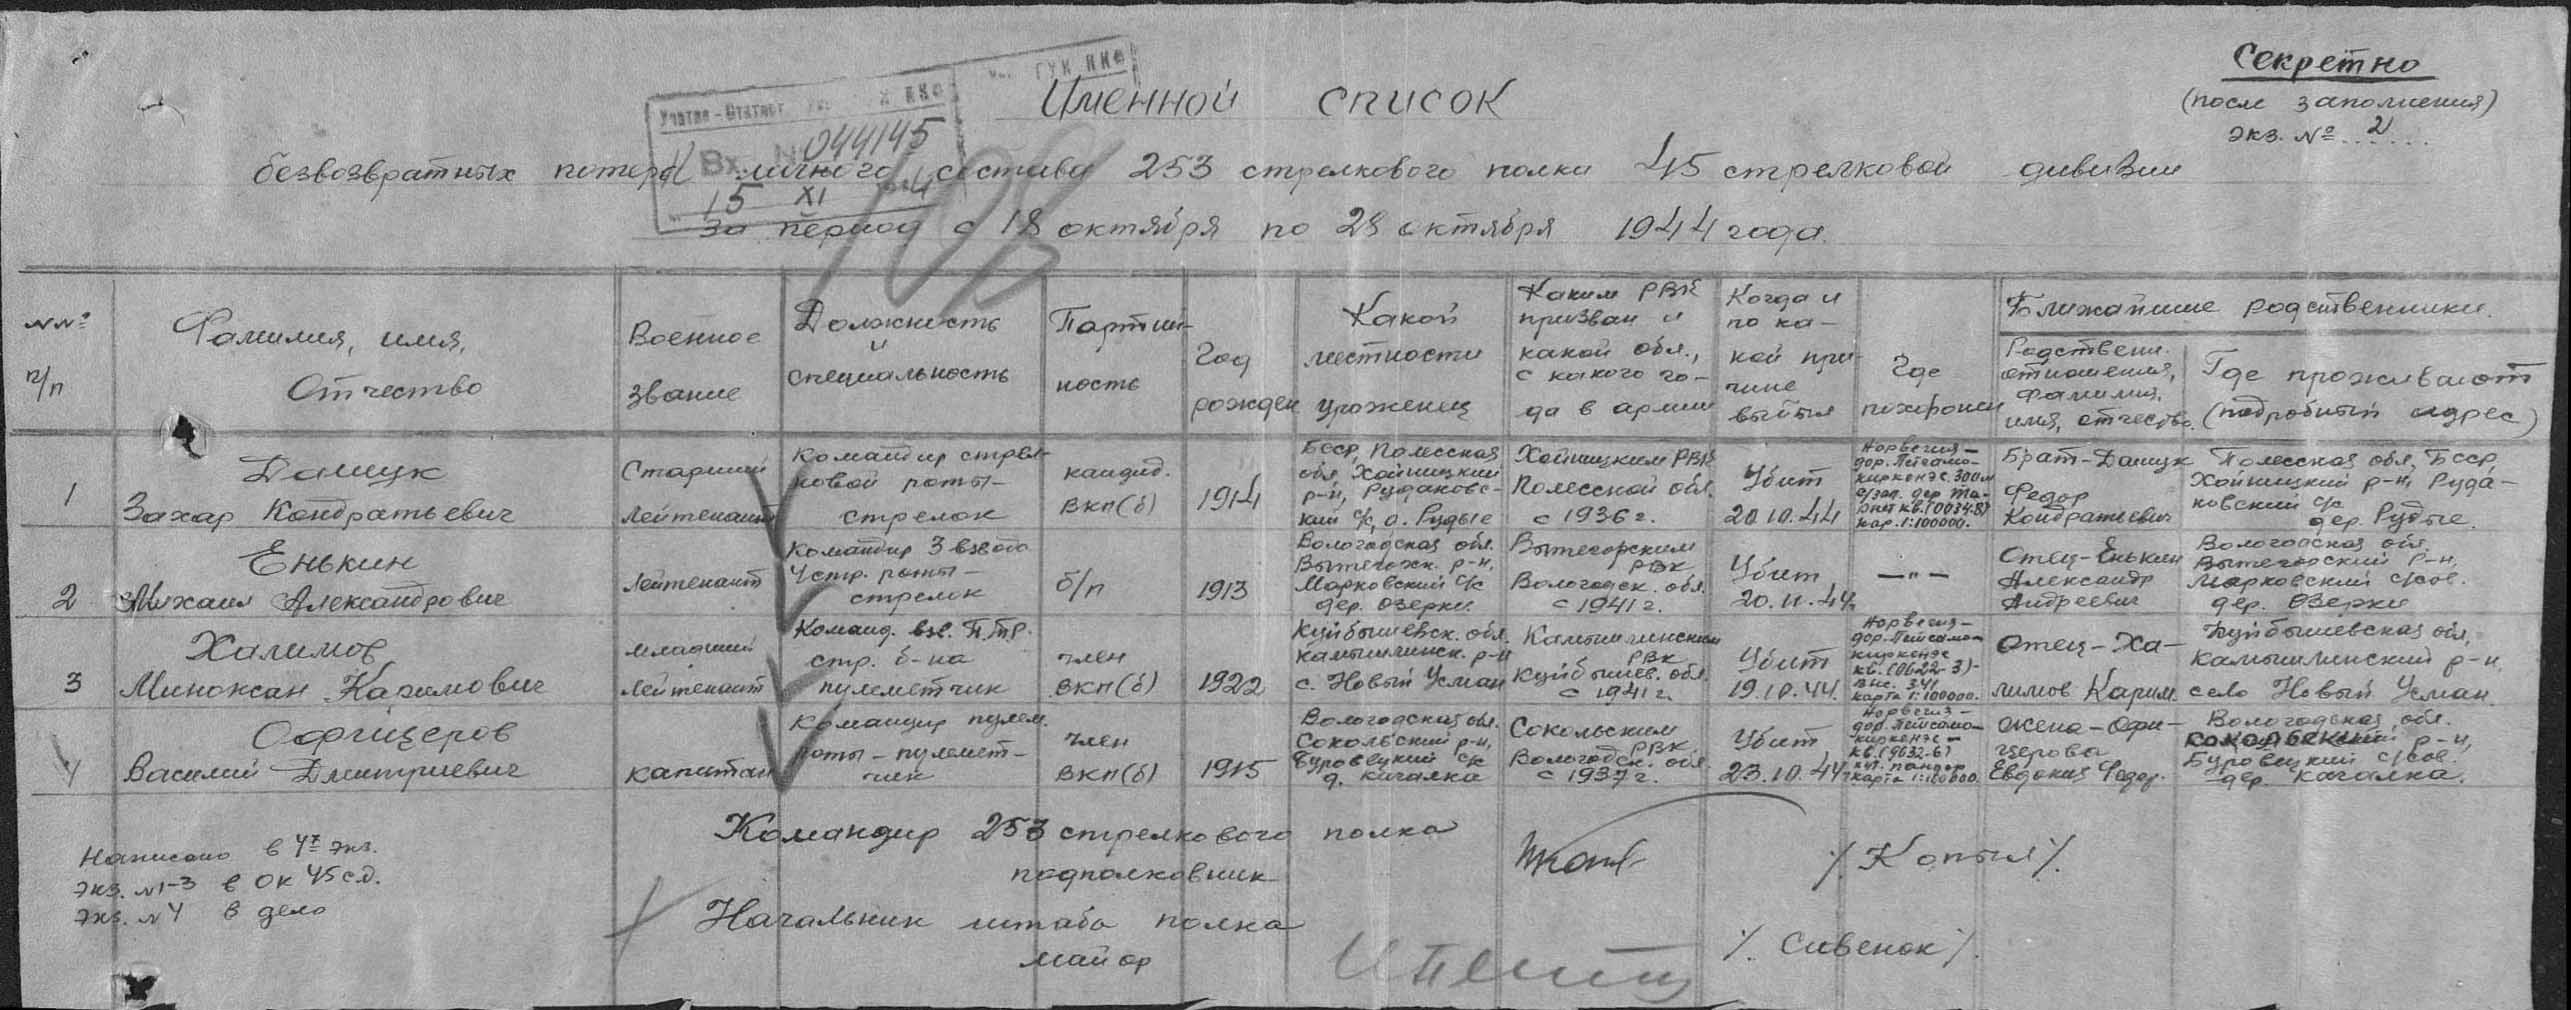 Секретно
(после заполнения)
экз. № 2
Учетно-Статист. НКО
ГУК НКО
Вх. N 044145
15 XI
Именной список
безвозвратных потерь личного состава 253 стрелкового полка 45 стрелковой дивизии
за период с 18 октября по 28 октября 1944 года.
№№ п/п
Фамилия, имя, Отчество
Военное звание
Должность и специальность
Партий-ность
Год рожден
Какой местности уроженец
Каким РВК призван и какой обл., с какого го-да в армии
Когда и по ка-кой при-чине выбыл
Где похоронен
Ближайшие родственники.
Родствен. отношения, фамилия, имя, отчество.
Где проживают (подробный адрес)
1
Дашук
Захар Кондратьевич
Старший лейтенант
Командир стрел-ковой роты - стрелок
кандид. ВКП(б)
1914
БССР, Полесская обл, Хойникский р-н, Рудаковс-кий с/с, д. Рудые
Хойникским РВК Полесской обл. с 1936 г.
Убит 20.10.44
Норвегия - дор. Петсамо - киркенэс. 300 м кв. (0034-8) кар. 1:100000.
Брат - Дашук Федор Кондратьевич
Полесская обл, БССР, Хойникский р-н, Руда-ковский с/с дер. Рудые.
2
Енькин
Михаил Александрович
Лейтенант
Командир 3 взвода 4 стр. роты - стрелок
б/п
1913
Вологодская обл. Вытегорск. р-н, Марковский с/с дер. Озерки.
Вытегорским РВК Вологодск. обл. с 1941 г.
Убит 20.10.44г.
— " —
Отец - Енькин Александр Андреевич
Вологодская обл, Вытегорский р-н, Марковский с/сов. дер. Озерки
3
Халимов
Миноксан Каримович
младший лейтенант
Команд. взв. П.Т.Р. стр. б-на пулеметчик
член ВКП(б)
1922
Куйбышевск. обл. камышлинск. р-н с. Новый Усман
Камышлинским РВК Куйбышев. обл. с 1941 г.
Убит 19.10.44.
Норвегия - дор. Петсамо - киркенэс кв. (0622-3) - выс. 344 карта 1:100000.
Отец - Ха-лимов Карим.
Куйбышевская обл, Камышлинский р-н, село Новый Усман.
4
Офицеров
Василий Дмитриевич
капитан
Командир пулем. роты - пулемет-чик
член ВКП(б)
1915
Вологодская обл. Сокольский р-н, Буровецкий с/с д. качалка
Сокольским РВК Вологодск. обл. с 1937 г.
Убит 23.10.44г
Норвегия - дор. Петсамо - киркенэс - кв. (9632-6) карта 1:100000.
жена - Офи-церова Евдокия Федор.
Вологодская обл. Сокольский р-н, Буровецкий с/сов. дер. Качалка.
Командир 253 стрелкового полка
подполковник
/. Копыл /.
Начальник штаба полка
майор
/. Сивенок /.
Написано в 4х экз.
экз. №1-3 в ОК 45 с.д.
экз. №4 в дело